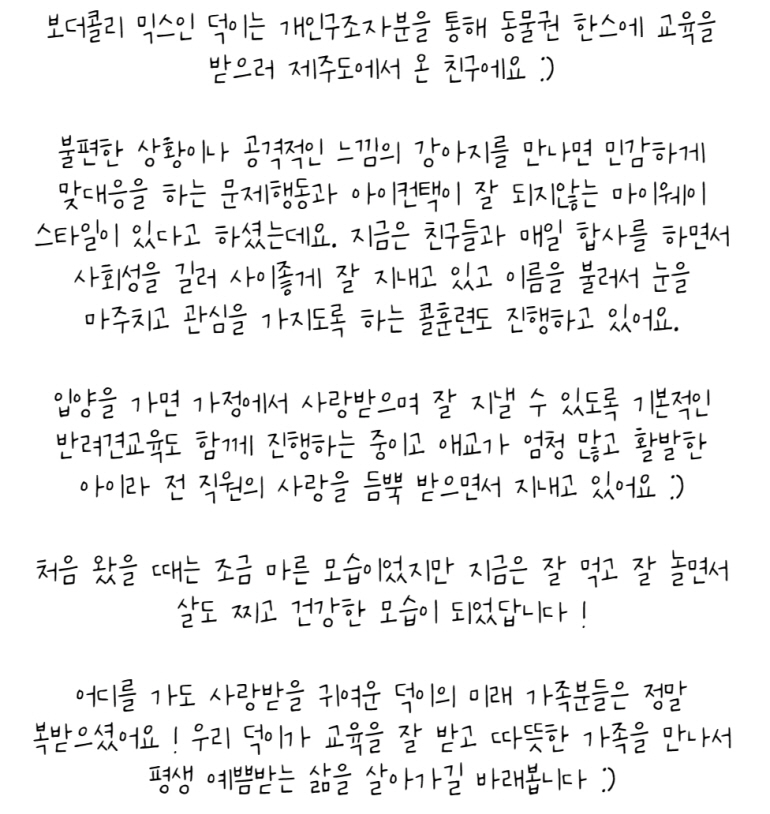 보더콜리 믹스인 덕이는 개인구조자분을 통해 동물권 한스에 교육을
받으러 제주도에서 온 친구에요 :)
불편한 상황이나 공격적인 느낌의 강아지를 만나면 민감하게
맞대응을 하는 문제행동과 아이컨택이 잘 되지않는 마이웨이
스타일이 있다고 하셨는데요. 지금은 친구들과 매일 합사를 하면서
사회성을 길러 사이좋게 잘 지내고 있고 이름을 불러서 눈을
마주치고 관심을 가지도록 하는 콜훈련도 진행하고 있어요.
입양을 가면 가정에서 사랑받으며 잘 지낼 수 있도록 기본적인
반려견교육도 함께 진행하는 중이고 애교가 엄청 많고 활발한
아이라 전 직원의 사랑을 듬뿍 받으면서 지내고 있어요 :)
처음 왔을 때는 조금 마른 모습이었지만 지금은 잘 먹고 잘 놀면서
살도 찌고 건강한 모습이 되었답니다 !
어디를 가도 사랑받을 귀여운 덕이의 미래 가족분들은 정말
복받으셨어요 ! 우리 덕이가 교육을 잘 받고 따뜻한 가족을 만나서
평생 예쁨받는 삶을 살아가길 바래봅니다 :)